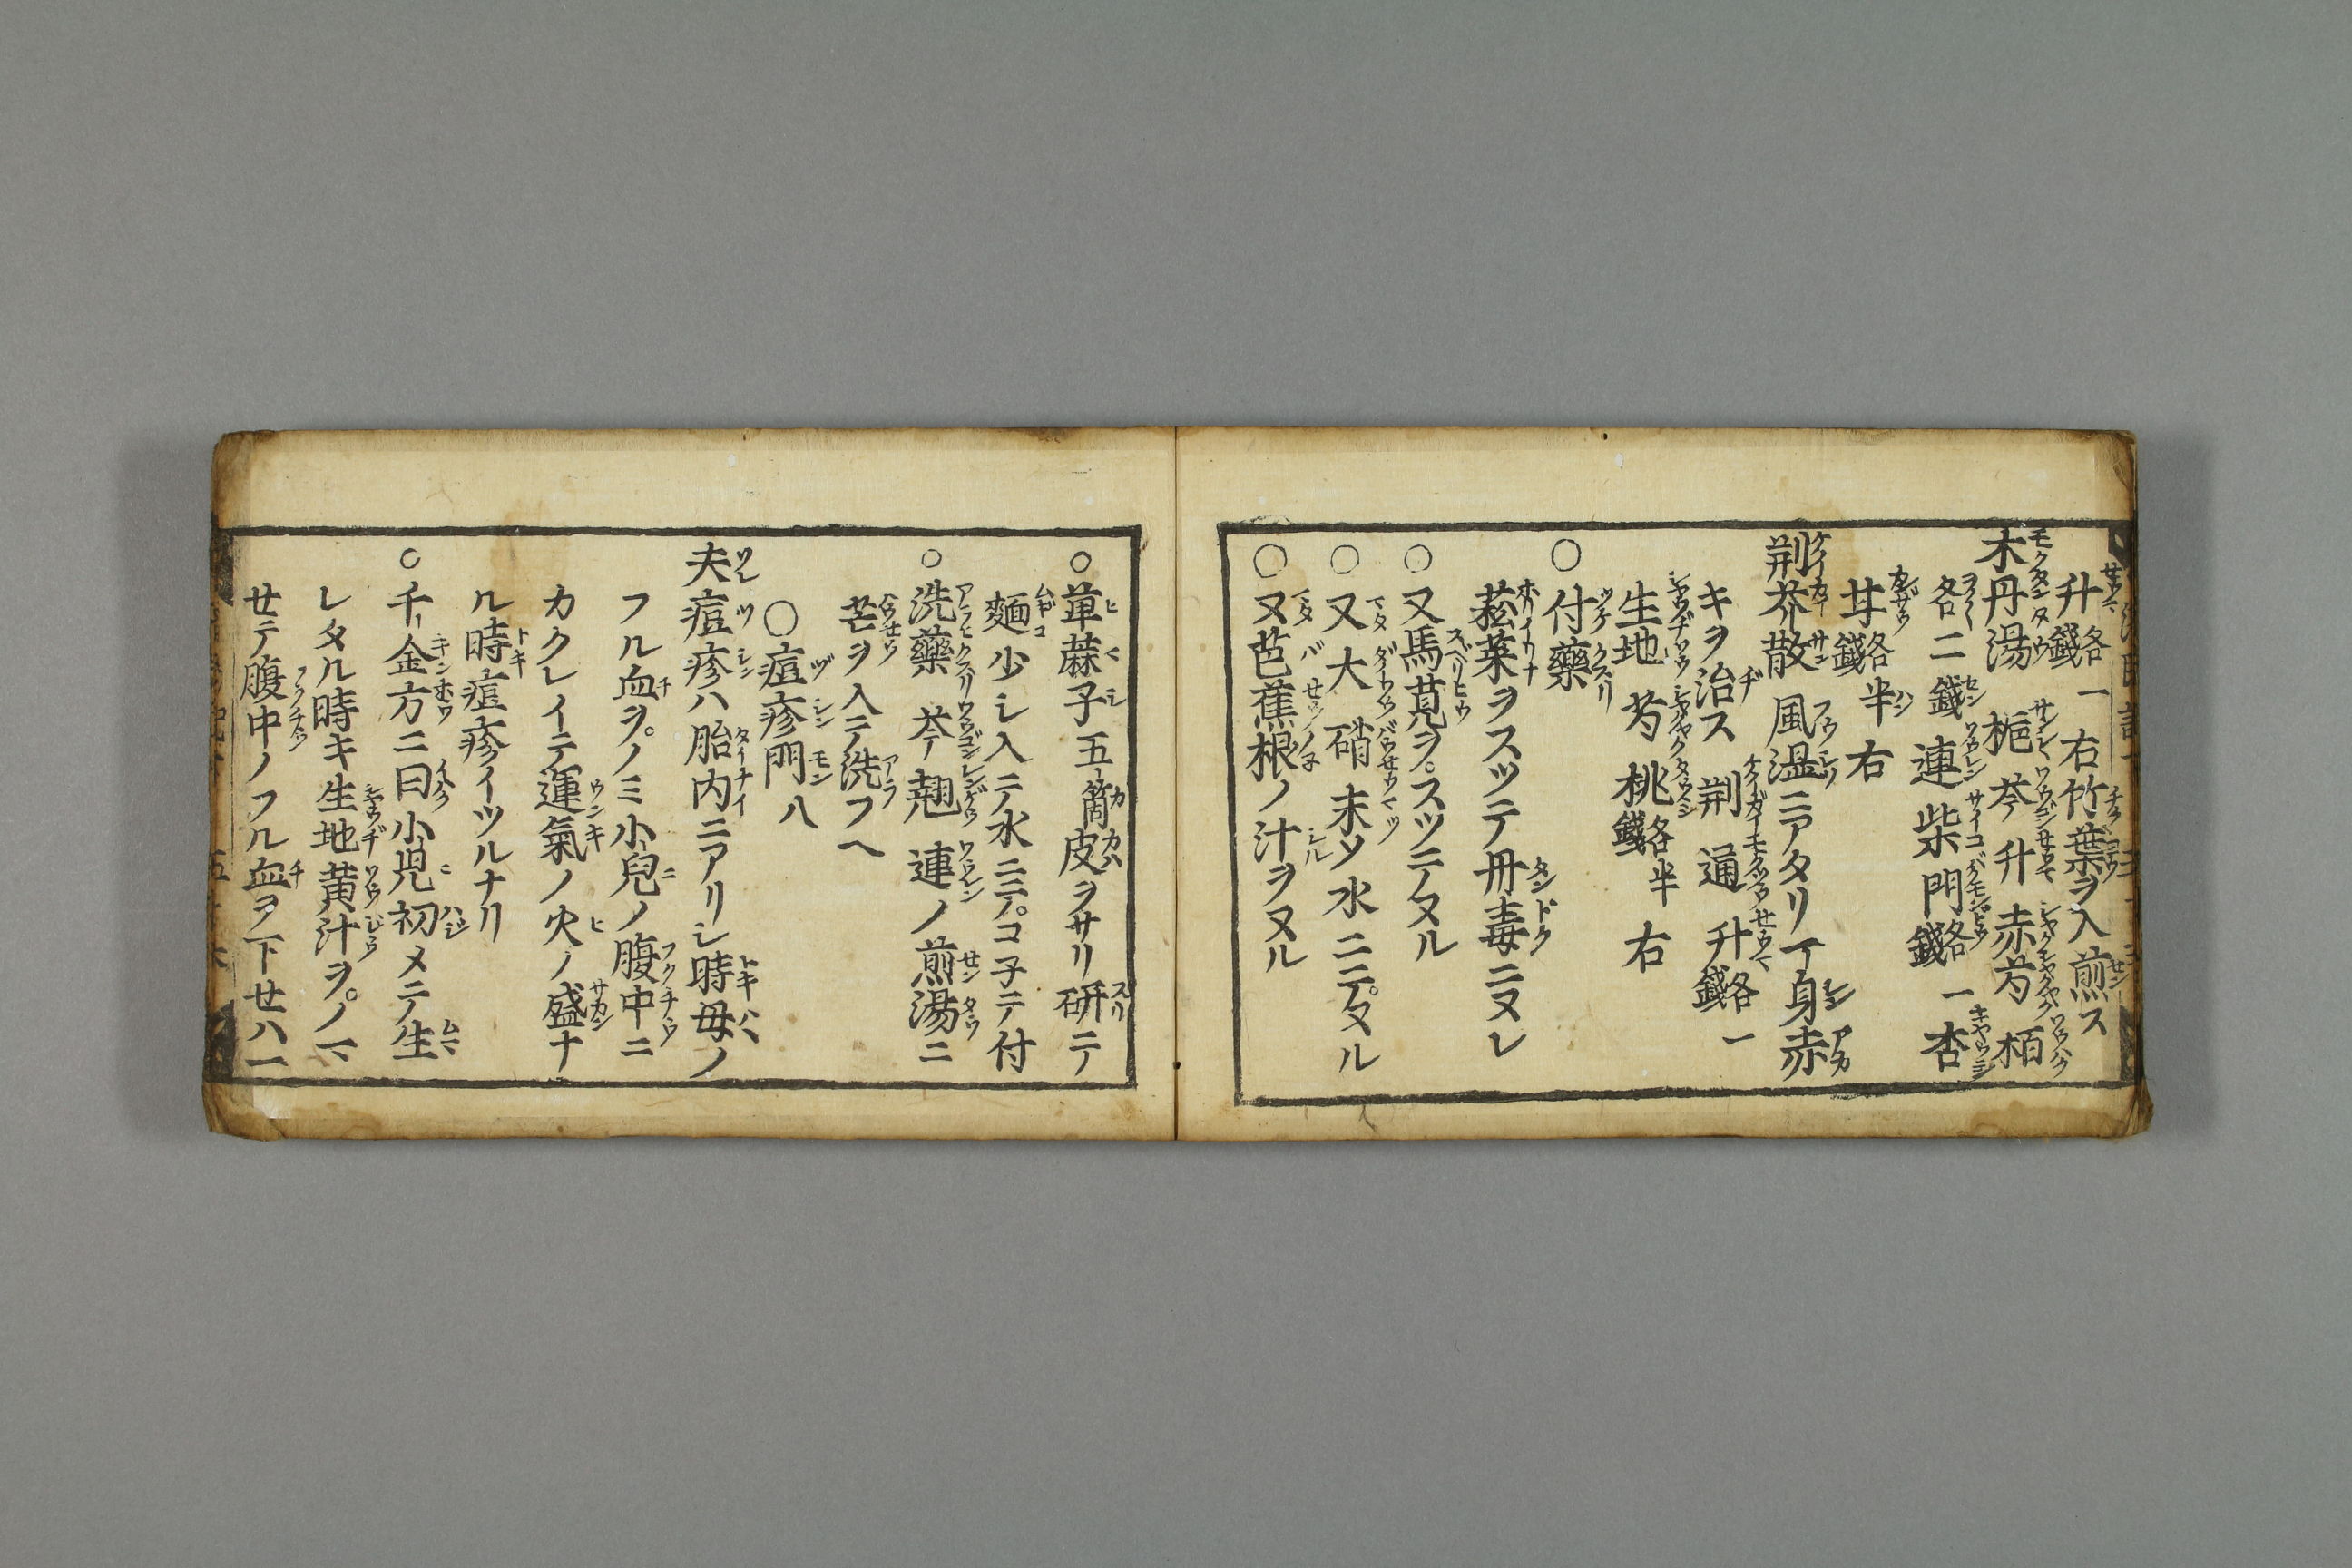 升各一錢右竹葉ヲ入煎ス
木丹湯 梔芩升赤芍栢
各二錢連柴門各一錢杏
甘各半錢右
荆芥散 風温ニアタリテ身赤
キヲ治ス 荆通升各一錢
生地芍桃各半錢右
〇付藥
菘菜ヲスツテ丹毒ニヌレ
〇又馬莧ヲスツテヌル
〇又大硝末ソ水ニテヌル
〇又芭蕉根ノ汁ヲヌル
〇萆蔴子五箇皮ヲサリ研テ
麵少シ入テ水ニテコ子テ付
〇洗藥 芩翹連ノ煎湯ニ
芒ヲ入テ洗フヘ
〇痘疹門八
夫痘疹ハ胎内ニアリシ時母ノ
フル血ヲノミ小兒ノ腹中ニ
カクレイテ運氣ノ火ノ盛ナ
ル時痘疹イツルナリ
〇千金方ニ曰小児初メテ生
レタル時キ生地黄汁ヲノマ
せテ腹中ノフル血ヲ下せハ一